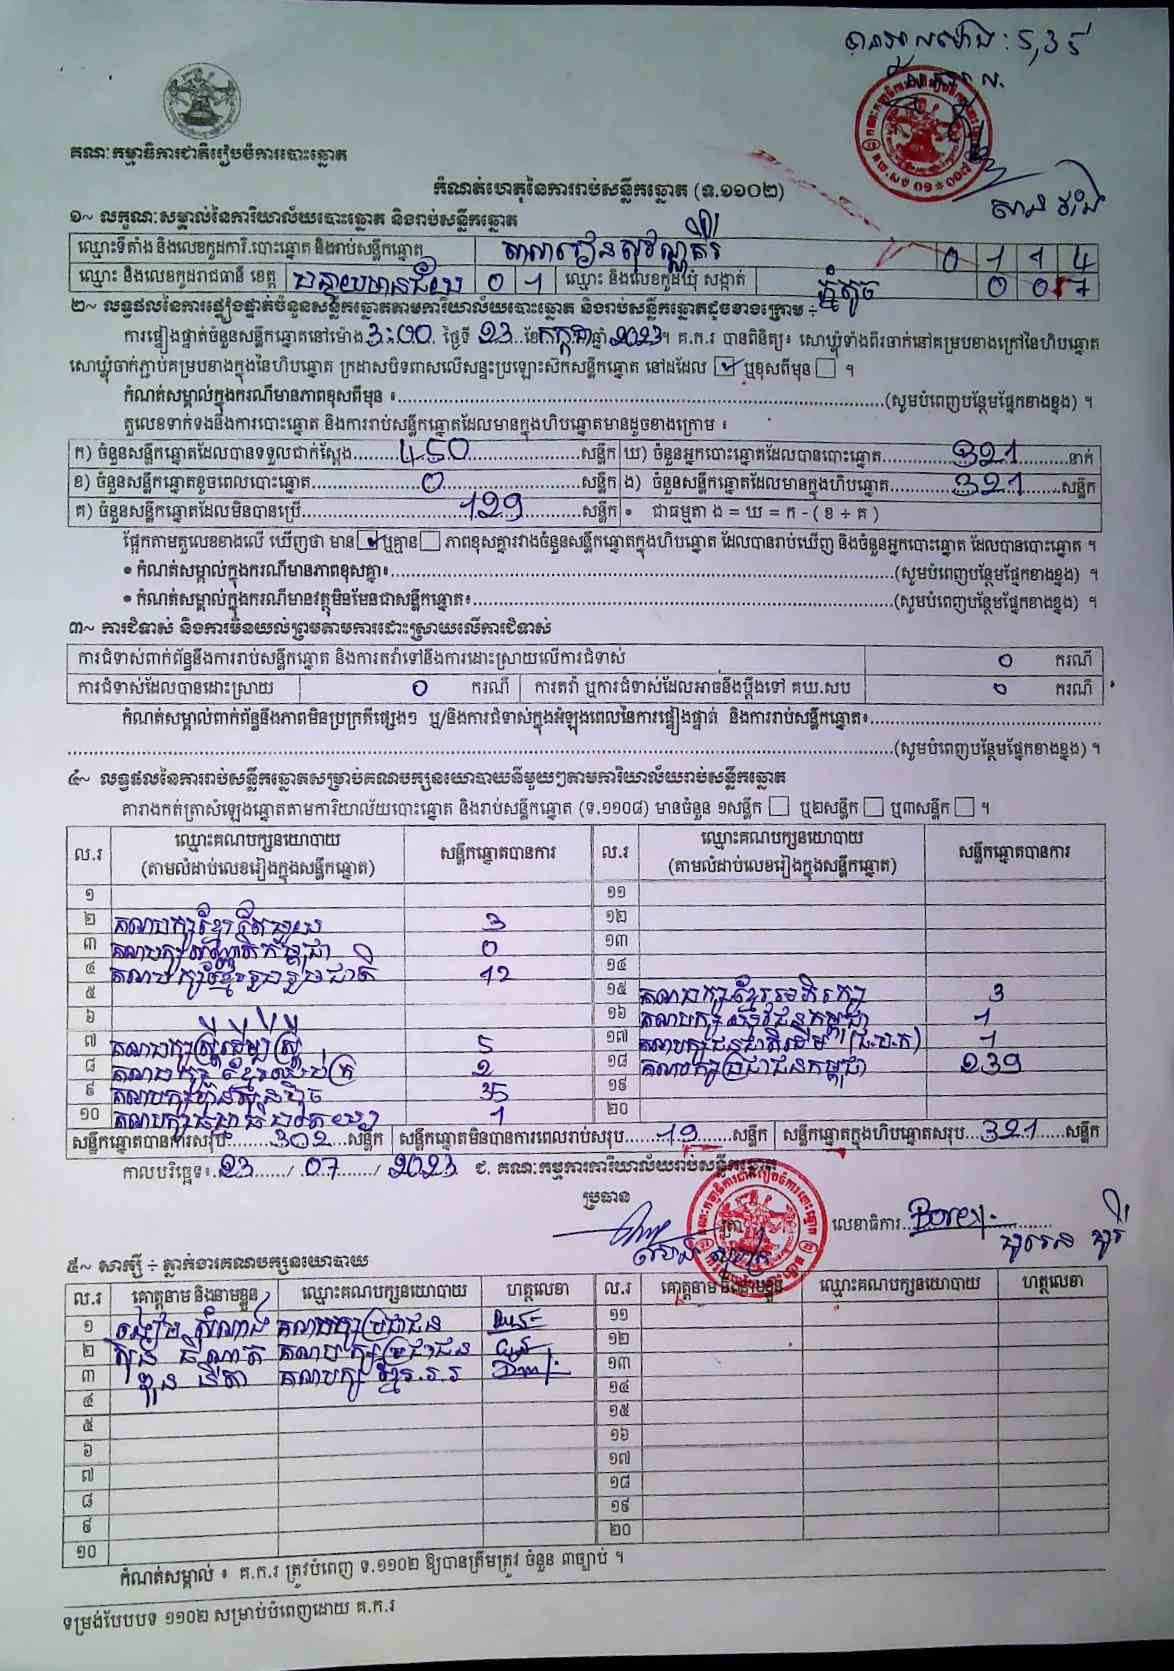 គណៈកម្មាធិការជាតិរៀបចំការបោះឆ្នោត
កំណត់ហេតុនៃការរាប់សន្លឹកឆ្នោត (ទ.១១០២)
១~ លក្ខណៈសម្គាល់នៃការិយាល័យបោះឆ្នោត និងរាប់សន្លឹកឆ្នោត
ឈ្មោះទីតាំង និងលេខកូដការិ.បោះឆ្នោត និងរាប់សន្លឹកឆ្នោត 0 1 1 4
ឈ្មោះ និងលេខកូដរាជធានី ខេត្ត បន្ទាយមានជ័យ 0 1 ឈ្មោះ និងលេខកូដឃុំ សង្កាត់ ភ្នំតូច 0 0 7
២~ លទ្ធផលនៃការផ្ទៀងផ្ទាត់ចំនួនសន្លឹកឆ្នោតតាមការិយាល័យបោះឆ្នោត និងរាប់សន្លឹកឆ្នោតដូចខាងក្រោម ÷
ការផ្ទៀងផ្ទាត់ចំនួនសន្លឹកឆ្នោតនៅម៉ោង 3:00 ថ្ងៃទី 23 ខែ កក្កដា ឆ្នាំ 2023 ។ គ.ក.រ បានពិនិត្យ៖ សោឃ្លុំទាំងពីរចាក់នៅគម្របខាងក្រៅនៃហិបឆ្នោត
សោឃ្លុំចាក់ភ្ជាប់គម្របខាងក្នុងនៃហិបឆ្នោត ក្រដាសបិទពាសលើសន្ទះប្រឡោះស៊កសន្លឹកឆ្នោត នៅដដែល ☑ ឬខុសពីមុន ☐ ។
កំណត់សម្គាល់ក្នុងករណីមានភាពខុសពីមុន ៖ (សូមបំពេញបន្ថែមផ្នែកខាងខ្នង) ។
តួលេខទាក់ទងនឹងការបោះឆ្នោត និងការរាប់សន្លឹកឆ្នោតដែលមានក្នុងហិបឆ្នោតមានដូចខាងក្រោម ៖
ក) ចំនួនសន្លឹកឆ្នោតដែលបានទទួលជាក់ស្តែង 450 សន្លឹក ឃ) ចំនួនអ្នកបោះឆ្នោតដែលបានបោះឆ្នោត 321 នាក់
ខ) ចំនួនសន្លឹកឆ្នោតខូចពេលបោះឆ្នោត 0 សន្លឹក ង) ចំនួនសន្លឹកឆ្នោតដែលមានក្នុងហិបឆ្នោត 321 សន្លឹក
គ) ចំនួនសន្លឹកឆ្នោតដែលមិនបានប្រើ 129 សន្លឹក • ជាធម្មតា ង = ឃ = ក - ( ខ + គ )
ផ្អែកតាមតួលេខខាងលើ ឃើញថា មាន ☑ ឬគ្មាន ☐ ភាពខុសគ្នារវាងចំនួនសន្លឹកឆ្នោតក្នុងហិបឆ្នោត ដែលបានរាប់ឃើញ និងចំនួនអ្នកបោះឆ្នោត ដែលបានបោះឆ្នោត ។
• កំណត់សម្គាល់ក្នុងករណីមានភាពខុសគ្នា៖ (សូមបំពេញបន្ថែមផ្នែកខាងខ្នង) ។
• កំណត់សម្គាល់ក្នុងករណីមានវត្ថុមិនមែនជាសន្លឹកឆ្នោត៖ (សូមបំពេញបន្ថែមផ្នែកខាងខ្នង) ។
៣~ ការជំទាស់ និងការមិនយល់ព្រមតាមការដោះស្រាយលើការជំទាស់
ការជំទាស់ពាក់ព័ន្ធនឹងការរាប់សន្លឹកឆ្នោត និងការតវ៉ាទៅនឹងការដោះស្រាយលើការជំទាស់ 0 ករណី
ការជំទាស់ដែលបានដោះស្រាយ 0 ករណី ការតវ៉ា ឬការជំទាស់ដែលអាចនឹងប្តឹងទៅ គឃ.សប 0 ករណី
កំណត់សម្គាល់ពាក់ព័ន្ធនឹងភាពមិនប្រក្រតីផ្សេងៗ ឬ/និងការជំទាស់ក្នុងអំឡុងពេលនៃការផ្ទៀងផ្ទាត់ និងការរាប់សន្លឹកឆ្នោត៖
(សូមបំពេញបន្ថែមផ្នែកខាងខ្នង) ។
៤~ លទ្ធផលនៃការរាប់សន្លឹកឆ្នោតសម្រាប់គណបក្សនយោបាយនីមួយៗតាមការិយាល័យរាប់សន្លឹកឆ្នោត
តារាងកត់ត្រាសំឡេងឆ្នោតតាមការិយាល័យបោះឆ្នោត និងរាប់សន្លឹកឆ្នោត (ទ.១១០៨) មានចំនួន ១សន្លឹក ☐ ឬ២សន្លឹក ☐ ឬ៣សន្លឹក ☐ ។
ល.រ ឈ្មោះគណបក្សនយោបាយ (តាមលំដាប់លេខរៀងក្នុងសន្លឹកឆ្នោត) សន្លឹកឆ្នោតបានការ ល.រ ឈ្មោះគណបក្សនយោបាយ (តាមលំដាប់លេខរៀងក្នុងសន្លឹកឆ្នោត) សន្លឹកឆ្នោតបានការ
១ ១១
២ គណបក្សខ្មែរតែមួយ 3 ១២
៣ គណបក្ស 0 ១៣
៤ គណបក្សខ្មែររួបរួមជាតិ 12 ១៤
៥ ១៥ គណបក្សខ្មែរអភិរក្ស 3
៦ ១៦ គណបក្សយុវជនកម្ពុជា 1
៧ គណបក្សស្ត្រីដើម្បីស្ត្រី 5 ១៧ គណបក្សជនជាតិដើម 1
៨ គណបក្សខ្មែរឈប់ក្រ 2 ១៨ គណបក្សប្រជាជនកម្ពុជា 239
៩ គណបក្សហ៊្វុនស៊ិនប៉ិច 35 ១៩
១០ គណបក្ស 1 ២០
សន្លឹកឆ្នោតបានការសរុប 302 សន្លឹក សន្លឹកឆ្នោតមិនបានការពេលរាប់សរុប 19 សន្លឹក សន្លឹកឆ្នោតក្នុងហិបឆ្នោតសរុប 321 សន្លឹក
កាលបរិច្ឆេទ៖ 23 / 07 / 2023 ជ. គណៈកម្មការការិយាល័យរាប់សន្លឹកឆ្នោត
ប្រធាន
លេខាធិការ Borey
៥~ សាក្សី ÷ ភ្នាក់ងារគណបក្សនយោបាយ
ល.រ គោត្តនាម និងនាមខ្លួន ឈ្មោះគណបក្សនយោបាយ ហត្ថលេខា ល.រ គោត្តនាម និងនាមខ្លួន ឈ្មោះគណបក្សនយោបាយ ហត្ថលេខា
១ សំណាង គណបក្សប្រជាជន ១១
២ គណបក្សប្រជាជន ១២
៣ គណបក្ស ខ្មែរ.រ.រ ១៣
៤ ១៤
៥ ១៥
៦ ១៦
៧ ១៧
៨ ១៨
៩ ១៩
១០ ២០
កំណត់សម្គាល់ ៖ គ.ក.រ ត្រូវបំពេញ ទ.១១០២ ឱ្យបានត្រឹមត្រូវ ចំនួន ៣ច្បាប់ ។
ទម្រង់បែបបទ ១១០២ សម្រាប់បំពេញដោយ គ.ក.រ